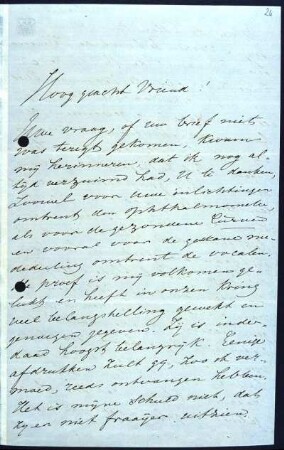 26
Hooggeacht Vriend!
Uwe vraag, of uw brief niet
was teregt gekomen, kwam
mij herinneren, dat ik nog al-
tijd verzuimd had, U te danken,
zoowel voor uwe inlichtingen
omtrent den ophthalmometer,
als voor de gezondene
en vooral voor de gedane me-
dedeeling omtrent de vocalen.
De proef is mij volkomen ge-
lukt en heeft in onzen kring
veel belangstelling gewekt en
genoegen gegeven. Zij is inder-
daad hoogst belangrijk. Eenige
afdrukken zult gij, zoo ik ver-
moed, reeds ontvangen hebben.
Het is mijne schuld niet, dat
zij er niet fraaijer uitzien